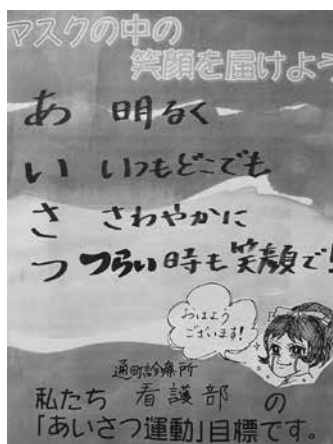 マスクの中の
笑顔を届けよう
あ 明るく
い いつもどこでも
さ さわやかに
つ つらい時も笑顔で!
おはよう
ございます!
通町診療所
私たち 看護部 の
「あいさつ運動」目標です。